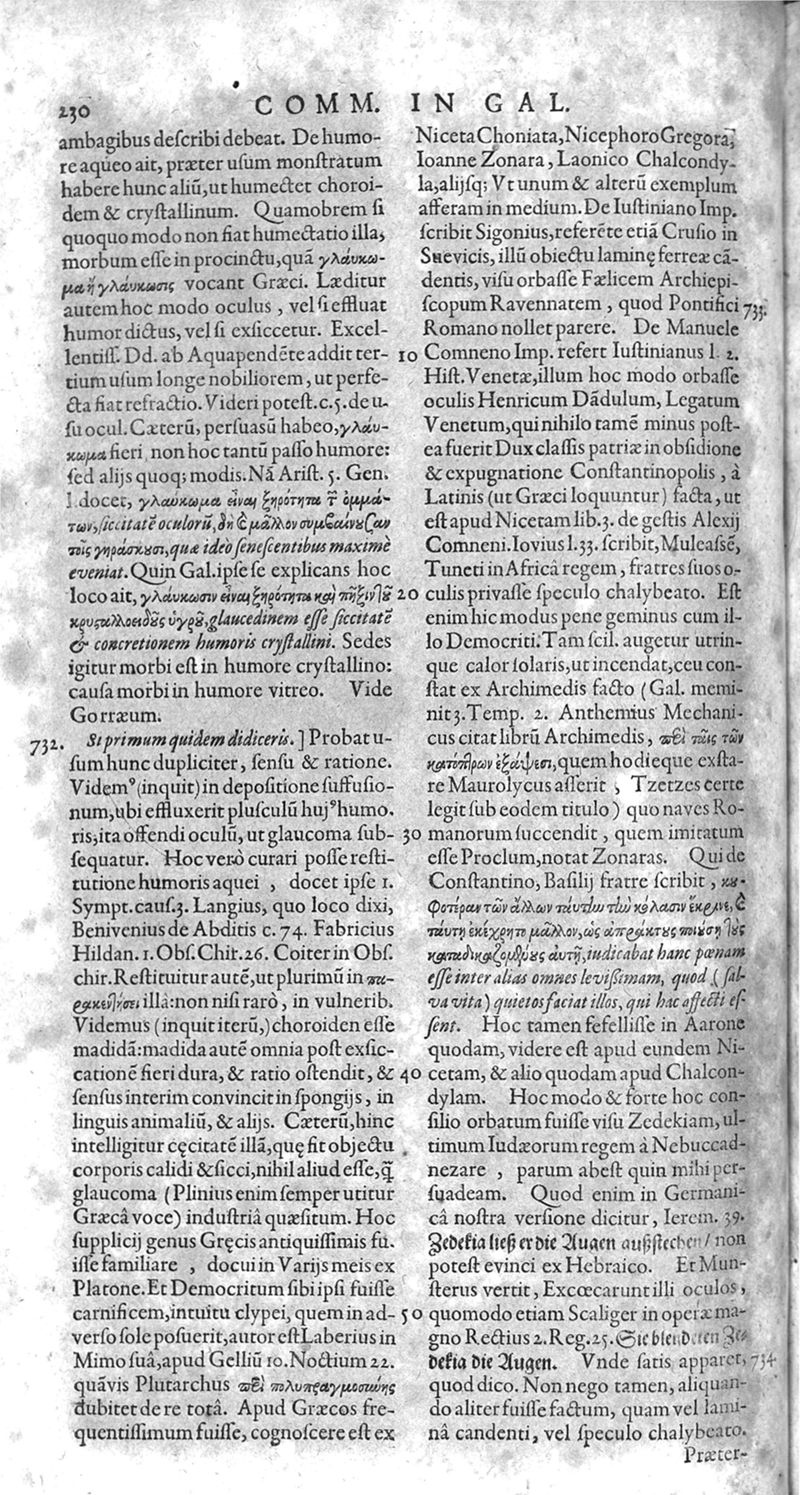 230 COMM. IN GAL.
ambagibus deſcribi debeat. De humo-
re aqueo ait, præter uſum monſtratum
habere hunc aliū, ut humectet choroi-
dem & cryſtallinum. Quamobrem ſi
quoquo modo non fiat humectatio illa,
morbum eſſe in procinctu, quā γλαύκω-
μα ἢ γλαύκωσις vocant Græci. Læditur
autem hoc modo oculus, vel ſi effluat
humor dictus, vel ſi exſiccetur. Excel-
lentiſſ. Dd. ab Aquapendēte addit ter-
tium uſum longe nobiliorem, ut perfe-
cta fiat refractio. Videri poteſt. c. 5. de u-
ſu ocul. Cæterū, perſuasū habeo, γλαύ-
κωμα fieri non hoc tantū paſſo humore:
ſed alijs quoq; modis. Nā Ariſt. 5. Gen.
1 docet, γλαύκωμα εἶναι ξηρότητα τ̃ ὀμμά-
των, ſiccitatē oculorū, δὴ ϗ μᾶλλον συμβαίνουσαν
τοῖς γηράσκουσι, quæ ideo ſeneſcentibus maximè
eveniat. Quin Gal. ipſe ſe explicans hoc
loco ait, γλαύκωσιν εἶναι ξηρότητα καὶ πῆξιν τοῦ
κρυσταλλοειδοῦς ὑγροῦ, glaucedinem eſſe ſiccitatē
& concretionem humoris cryſtallini. Sedes
igitur morbi eſt in humore cryſtallino:
cauſa morbi in humore vitreo. Vide
Gorræum.
732. Si primum quidem didiceris. ] Probat u-
ſum hunc dupliciter, ſenſu & ratione.
Videmꝰ (inquit) in depoſitione ſuffuſio-
num, ubi effluxerit pluſculū hujꝰ humo.
ris, ita offendi oculū, ut glaucoma ſub-
ſequatur. Hoc verò curari poſſe reſti-
tutione humoris aquei, docet ipſe 1.
Sympt. cauſ. 3. Langius, quo loco dixi,
Benivenius de Abditis c. 74. Fabricius
Hildan. 1. Obſ. Chir. 26. Coiter in Obſ.
chir. Reſtituitur autē, ut plurimū in πα-
ρακεντήσει illa: non niſi rarò, in vulnerib.
Videmus (inquit iterū,) choroiden eſſe
madidā: madida autē omnia poſt exſic-
cationē fieri dura, & ratio oſtendit, &
ſenſus interim convincit in ſpongijs, in
linguis animaliū, & alijs. Cæterū, hinc
intelligitur cęcitatē illā, quę fit objectu
corporis calidi & ſicci, nihil aliud eſſe, q̃
glaucoma (Plinius enim ſemper utitur
Græcâ voce) induſtriâ quæſitum. Hoc
ſupplicij genus Gręcis antiquiſſimis fu.
iſſe familiare, docui in Varijs meis ex
Platone. Et Democritum ſibi ipſi fuiſſe
carnificem, intuitu clypei, quem in ad-
verſo ſole poſuerit, autor eſt Laberius in
Mimo ſuâ, apud Gelliū 10. Noctium 22.
quāvis Plutarchus περὶ πολυπραγμοσύνης
dubitet de re totâ. Apud Græcos fre-
quentiſſimum fuiſſe, cognoſcere eſt ex
10
20
30
40
50
Niceta Choniata, Nicephoro Gregora,
Ioanne Zonara, Laonico Chalcondy-
la, alijſq; Vt unum & alterū exemplum
afferam in medium. De Iuſtiniano Imp.
ſcribit Sigonius, referēte etiā Cruſio in
Suevicis, illū obiectu laminę ferreæ cā-
dentis, viſu orbaſſe Fælicem Archiepi-
ſcopum Ravennatem, quod Pontifici 733.
Romano nollet parere. De Manuele
Comneno Imp. refert Iuſtinianus l. 2.
Hiſt. Venetæ, illum hoc modo orbaſſe
oculis Henricum Dādulum, Legatum
Venetum, qui nihilo tamē minus poſt-
ea fuerit Dux claſſis patriæ in obſidione
& expugnatione Conſtantinopolis, à
Latinis (ut Græci loquuntur) facta, ut
eſt apud Nicetam lib. 3. de geſtis Alexij
Comneni. Iovius l. 33. ſcribit, Muleaſſē,
Tuneti in Africâ regem, fratres ſuos o-
culis privaſſe ſpeculo chalybeato. Eſt
enim hic modus pene geminus cum il-
lo Democriti. Tam ſcil. augetur utrin-
que calor ſolaris, ut incendat, ceu con-
ſtat ex Archimedis facto (Gal. memi-
nit 3. Temp. 2. Anthemius Mechani-
cus citat librū Archimedis, περὶ ταῖς τῶν
κατόπτρων ἐξάψεσι, quem hodieque exſta-
re Maurolycus aſſerit, Tzetzes certe
legit ſub eodem titulo) quo naves Ro-
manorum ſuccendit, quem imitatum
eſſe Proclum, notat Zonaras. Qui de
Conſtantino, Baſilij fratre ſcribit, κου-
φοτέραν τῶν ἄλλων ταύτην τὴν κόλασιν ἔκρινε, ϗ
ταύτῃ ἐκέχρητο μᾶλλον, ὡς ἀπράκτους ποιούσῃ τοὺς
καταδικαζομένους αὐτῇ, iudicabat hanc pœnam
eſſe inter alias omnes leviſſimam, quod (ſal-
va vita) quietos faciat illos, qui hac affecti eſ-
ſent. Hoc tamen fefelliſſe in Aarone
quodam, videre eſt apud eundem Ni-
cetam, & alio quodam apud Chalcon-
dylam. Hoc modo & forte hoc con-
ſilio orbatum fuiſſe viſu Zedekiam, ul-
timum Iudæorum regem à Nebuccad-
nezare, parum abeſt quin mihi per-
ſuadeam. Quod enim in Germani-
câ noſtra verſione dicitur, Ierem. 39.
Zedekia ließ er die Augen außſtechen / non
poteſt evinci ex Hebraico. Et Mun-
ſterus vertit, Excœcarunt illi oculos,
quomodo etiam Scaliger in operæ ma-
gno Rectius 2. Reg. 25. Sie blendeten Ze-
dekia die Augen. Vnde ſatis apparet, 734
quod dico. Non nego tamen, aliquan-
do aliter fuiſſe factum, quam vel lami-
nâ candenti, vel ſpeculo chalybeato.
Præter-